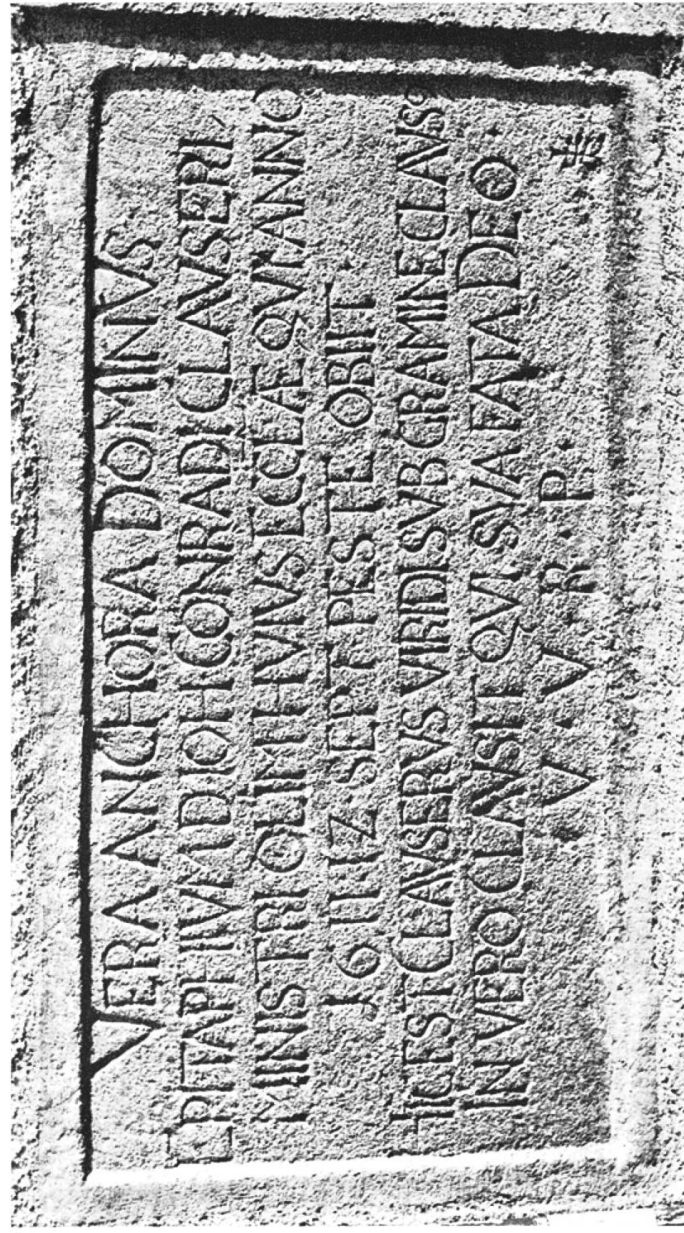 VERA ANCHORA DOMINVS.
EPITAPHIVM D IOH CONRADI CLAVSERI,
MINISTRI OLIM HVIVS ECCLEÆ QVI ANNO
1611 1Z. SEPT PESTE OBIIT.
HIC EST CLAVSERVS VIRIDI SVB GRAMINE CLAVSꝰ
IN VERO CLAVSIT QVI SVA FATA DEO.
V. V. R. P.